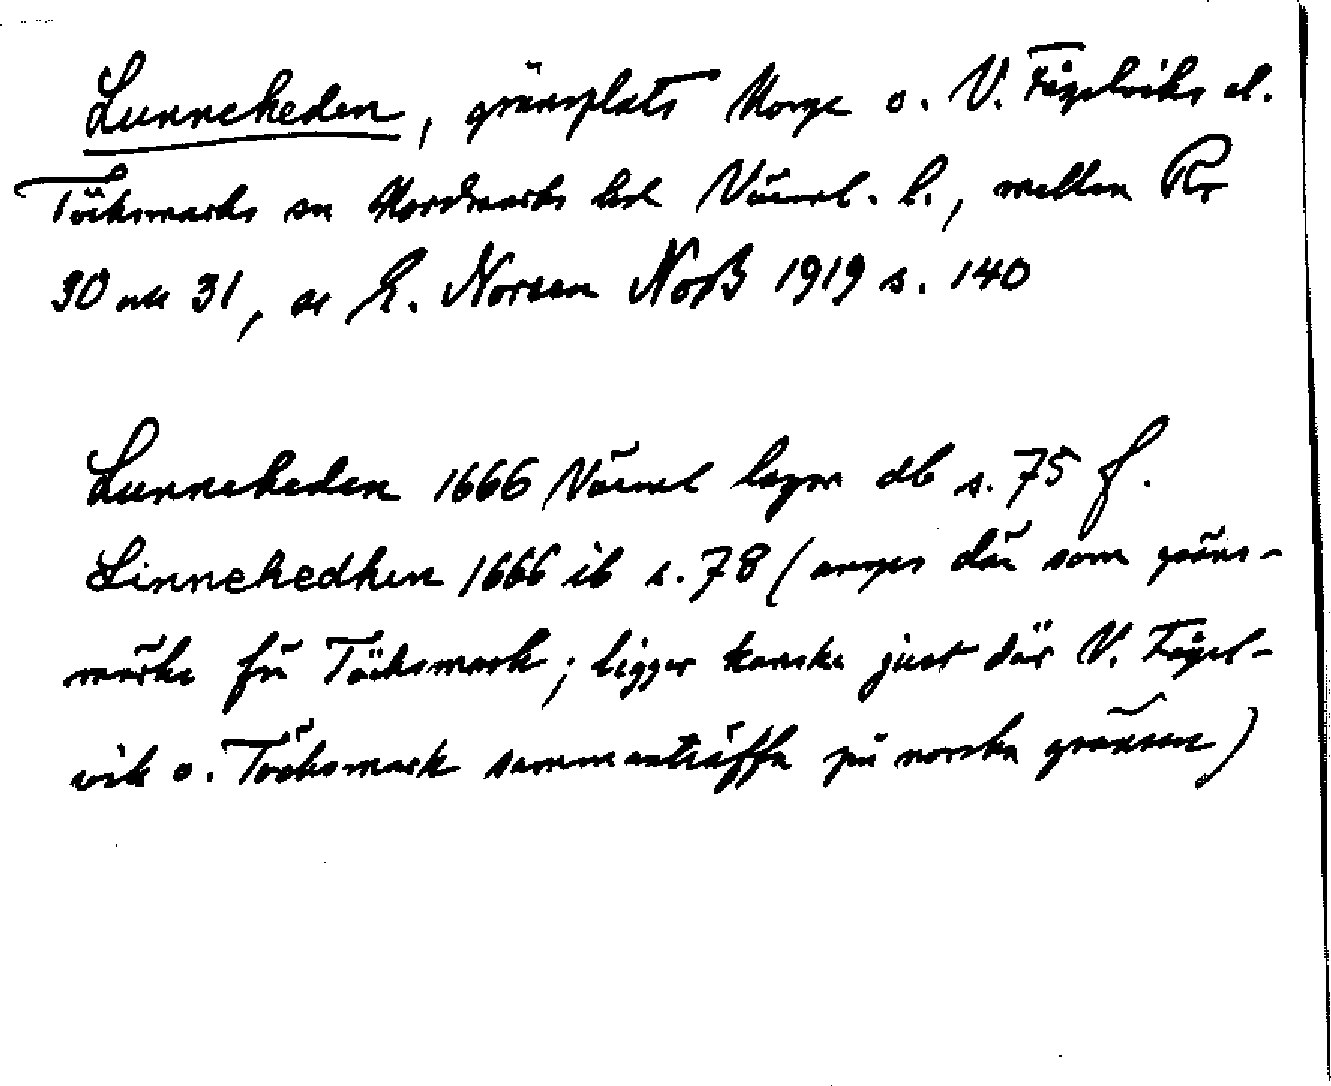 Lunneheden, gränsplats Norge o. V. Fågelviks el.
Töcksmarks sn Nordmarks hd Värml. l., mellan Rr
30 och 31, se E. Noreen NoB 1919 s. 140
Lunneheden 1666 Värml lagm db s. 75 f.
Linnehedhen 1666 ib s. 78 (anges där som gräns-
märke för Töcksmark; ligger kanske just där V. Fågel-
vik o. Töcksmark sammanträffa på norska gränsen)